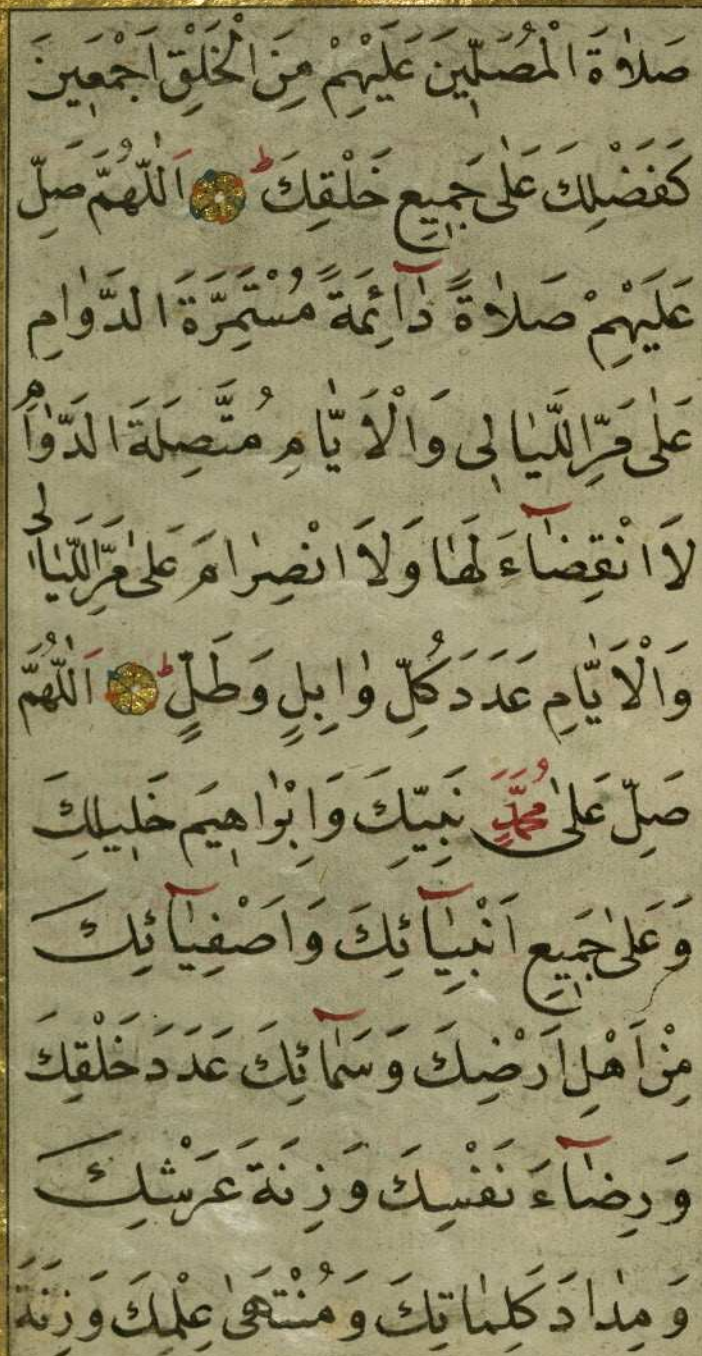 صَلٰوةَ الْمُصَلّ۪ينَ عَلَيْهِمْ مِنَ الْخَلْقِ اَجْمَع۪ينَ
كَفَضْلِكَ عَلٰى جَم۪يعِ خَلْقِكَ ط اَللّٰهُمَّ صَلِّ
عَلَيْهِمْ صَلٰاةً دٰٓائِمَةً مُسْتَمِرَّةَ الدَّوٰامِ
عَلٰى مَرِّ اللَّيٰالى وَالْاَيّٰامِ مُتَّصِلَةَ الدَّوٰامِ
لَا انْقِضٰٓاءَ لَهٰا وَلَا انْصِرٰامَ عَلٰى مَرِّ اللَّيٰالى
وَالْاَيّٰامِ عَدَدَ كُلِّ وٰابِلٍ وَطَلٍّ ط اَللّٰهُمَّ
صَلِّ عَلٰى مُحَمَّدٍ نَبِيِّكَ وَاِبْرٰاه۪يمَ خَل۪يلِكَ
وَعَلٰى جَم۪يعِ اَنْبِيٰٓائِكَ وَاَصْفِيٰٓائِكَ
مِنْ اَهْلِ اَرْضِكَ وَسَمٰٓائِكَ عَدَدَ خَلْقِكَ
وَرِضٰٓاءَ نَفْسِكَ وَزِنَةَ عَرْشِكَ
وَمِدٰادَ كَلِمٰاتِكَ وَمُنْتَهٰى عِلْمِكَ وَزِنَةَ